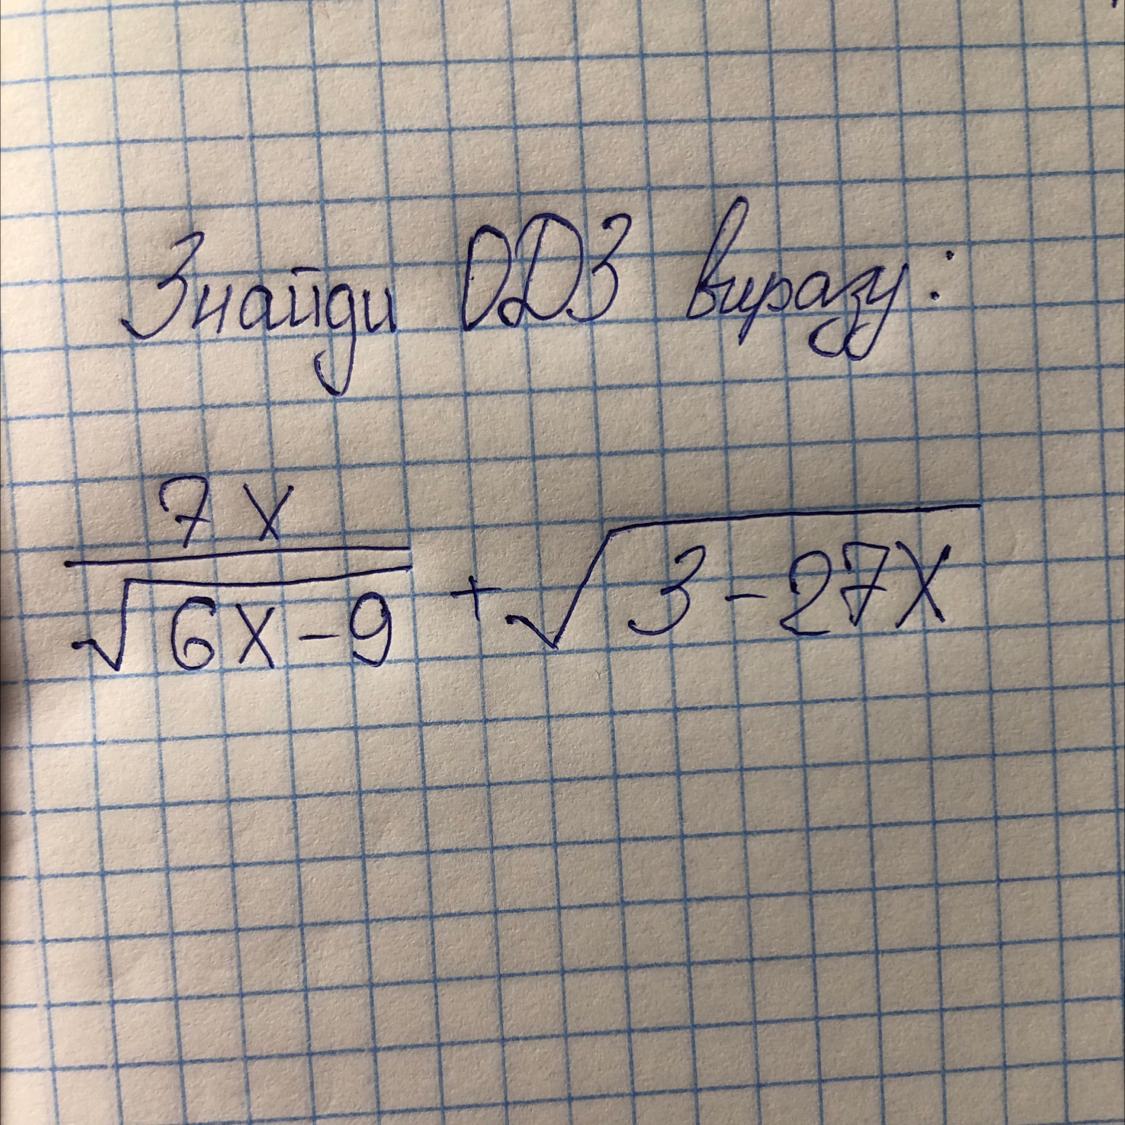 Знайди ОДЗ виразу:
7x
√6x-9 + √3-27x